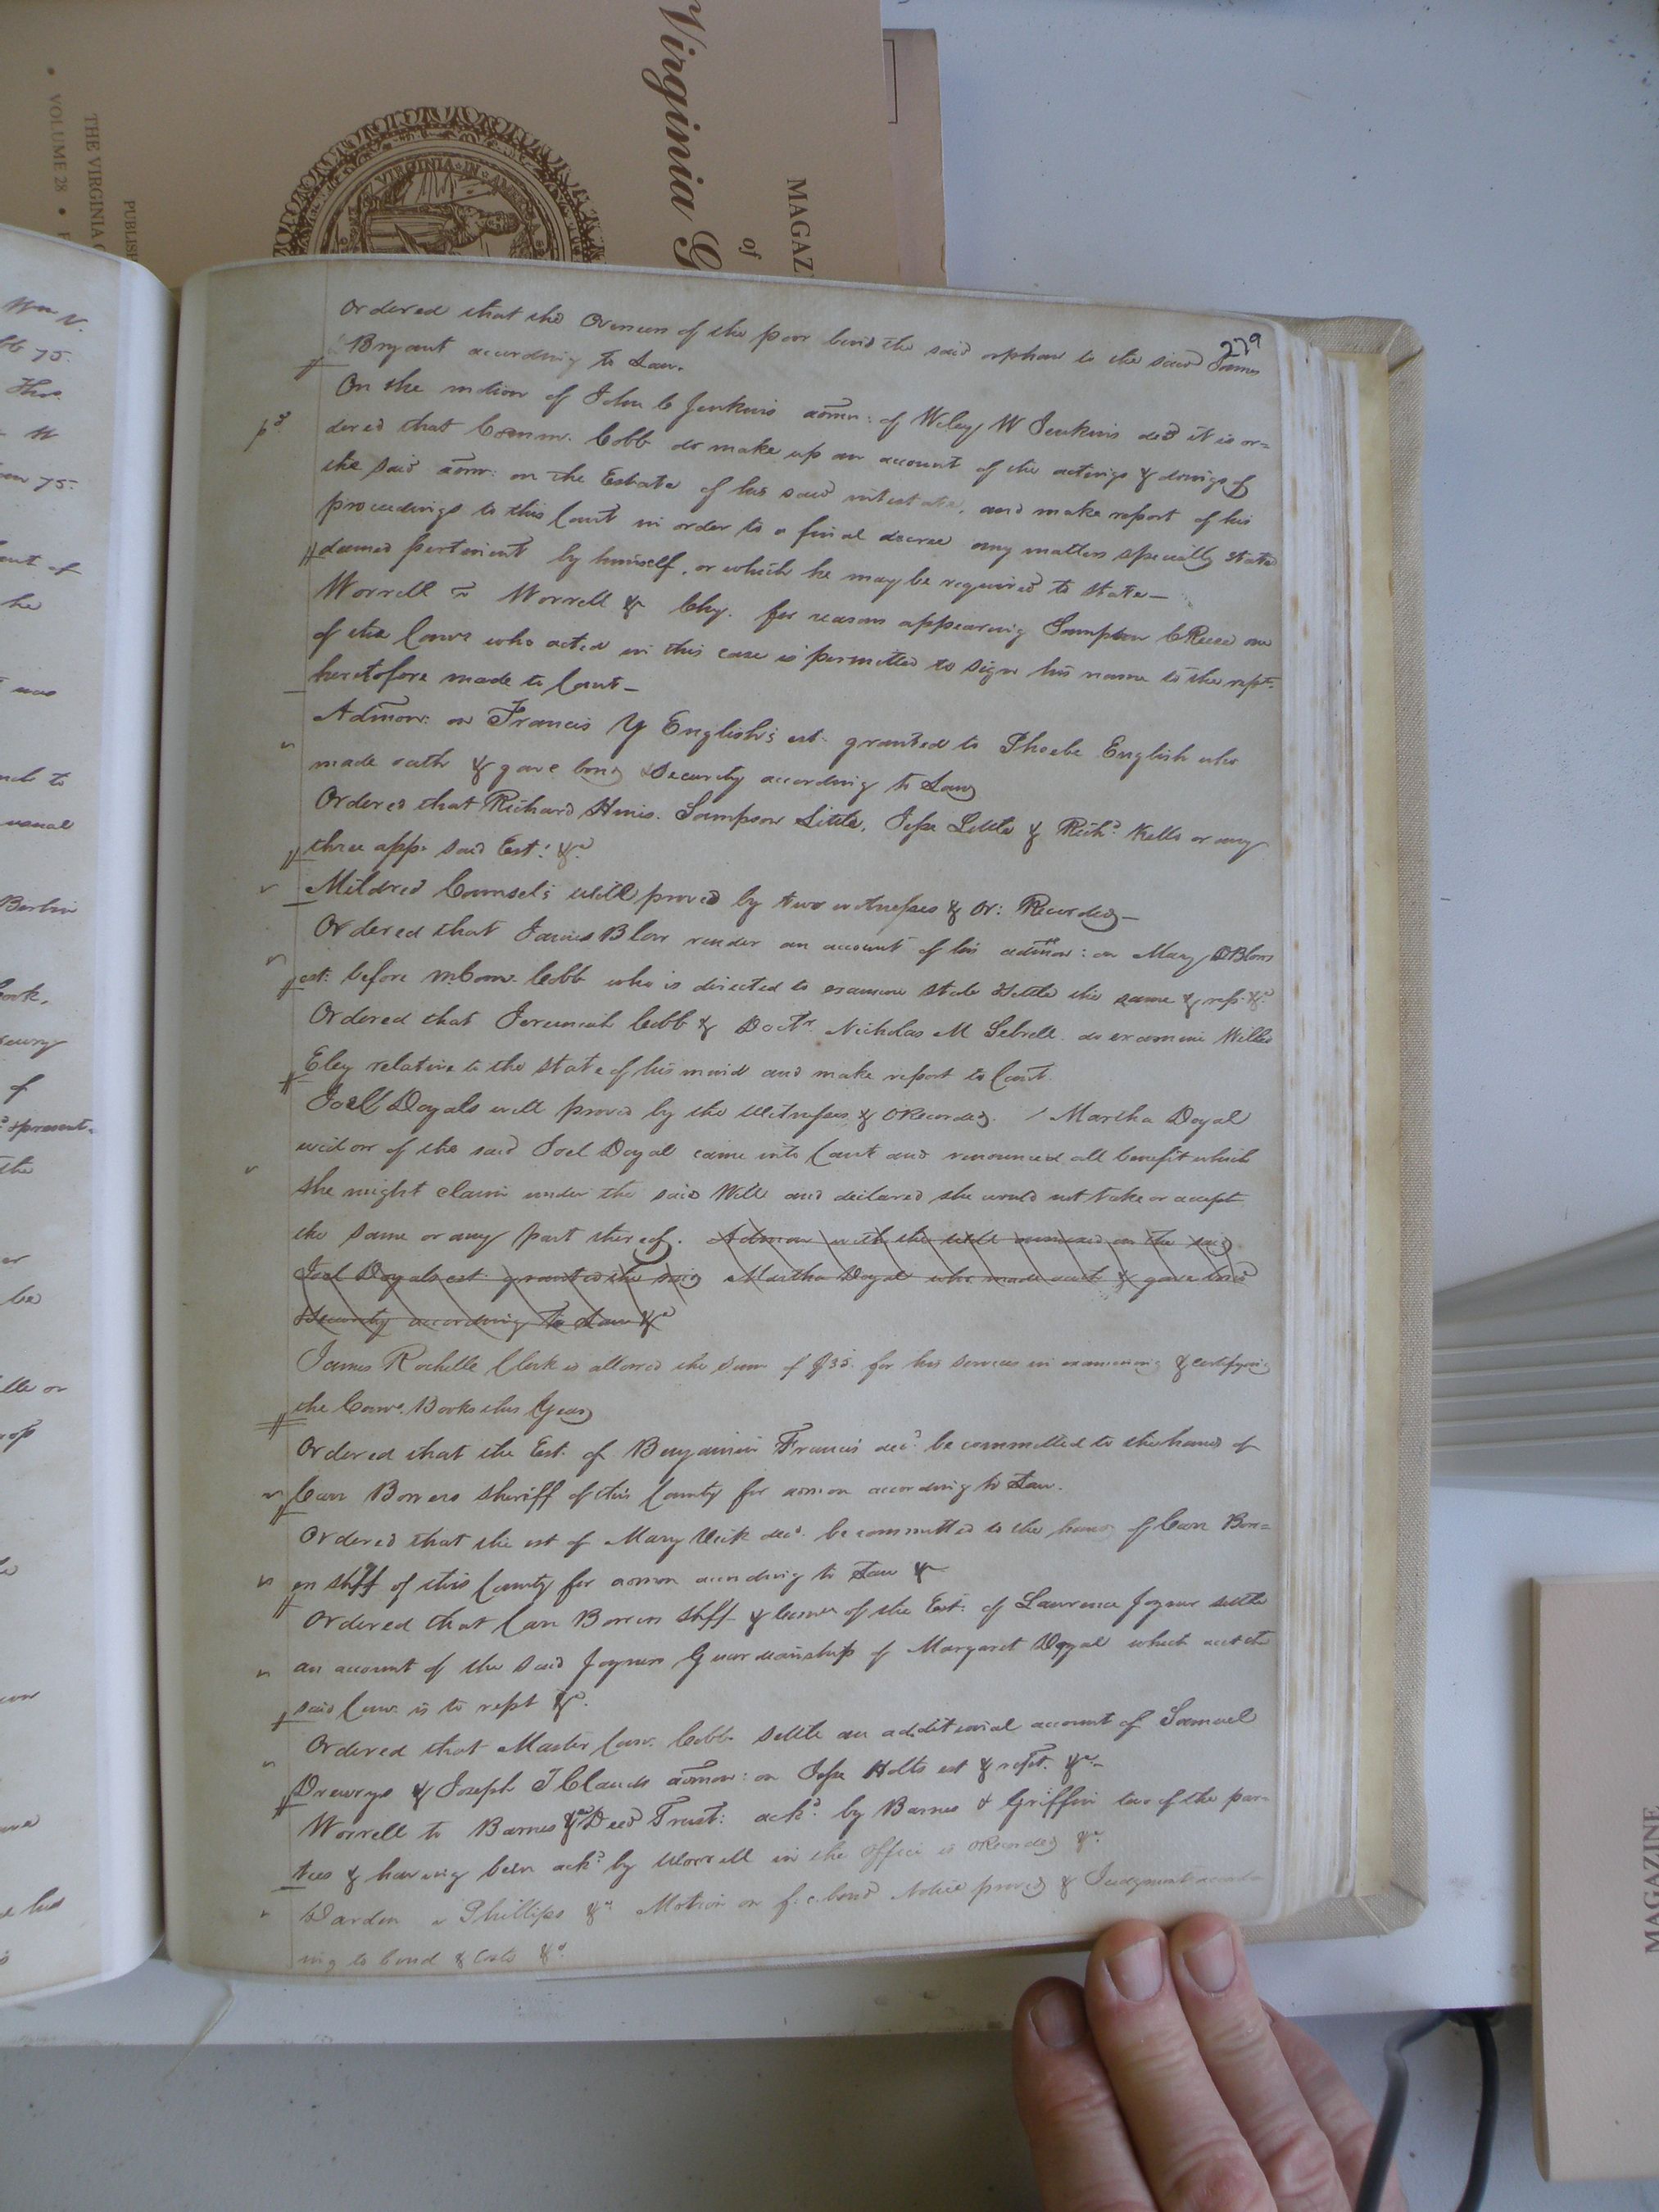 Virginia G
MAGAZ
of
THE VIRGINIA
VOLUME 28
PUBLISH
VIRGINIA IN
279
Ordered that the Overseers of the poor bind the said orphan to the said James
Bryant according to Law.
On the motion of John C Jenkins admr: of Wiley W Jenkins decd it is or=
pd
dered that Comm. Cobb do make up an account of the actings & doings of
the said admr: on the Estate of his said intestate, and make report of his
proceedings to this Court in order to a final decree any matters specially stated
deemed pertinent by himself, or which he may be required to state—
Worrell vs Worrell & Chy. for reasons appearing Sampson C Reese one
of the Comrs who acted in this case is permitted to sign his name to the rept.
heretofore made to Court—
Admon: on Francis Y English's est. granted to Phoebe English who
made oath & gave bond & Security according to Law
Ordered that Richard Hines. Sampson Little, Jesse Little & Richd. Kello or any
three app. said Est: &c
Mildred Counsel's will proved by two witnesses & Or: Recorded—
Ordered that James Blow render an account of his admon: on Mary Blows
est: before M. Com. Cobb who is directed to examine state & settle the same & rep. &c
Ordered that Jeremiah Cobb & Doctr. Nicholas M Sebrell do examine Willis
Eley relative to the state of his mind and make report to Court.
Joel Doyals will proved by the Witnesses & O Recorded. / Martha Doyal
widow of the said Joel Doyal came into Court and renounced all benefit which
she might claim under the said Will and declared she would not take or accept
the same or any part thereof. Admon with the will annexed on the said
Joel Doyals est. granted the said Martha Doyal who made oath & gave bond
& Security according to Law &c
James Rochelle Clerk is allowed the sum of $35. for his services in examining & certifying
the Comrs. Books this Year
Ordered that the Est. of Benjamin Francis decd. be committed to the hands of
Carr Bowers Sheriff of this County for admon according to Law.
Ordered that the est of Mary Vick decd. be committed to the hands of Carr Bow=
ers Shff of this County for admon according to Law &c
Ordered that Carr Bowers Shff & Comr of the Est. of Lawrence Joyner settle
an account of the said Joyners Guardianship of Margaret Doyal which acct the
said Com. is to rept &c.
Ordered that Master Com. Cobb settle an additional account of Samuel
Drewrys & Joseph T Clauds admon: on Jesse Holts est & rept. &c
Worrell to Barnes &c Deed Trust: ackd. by Barnes & Griffin two of the par=
ties & having been ackd. by Worrell in the office is O Recorded &c.
Darden vs Phillips &c Motion on f. c. bond Notice proved & Judgment accord
ing to bond & Costs &c.
MAGAZINE